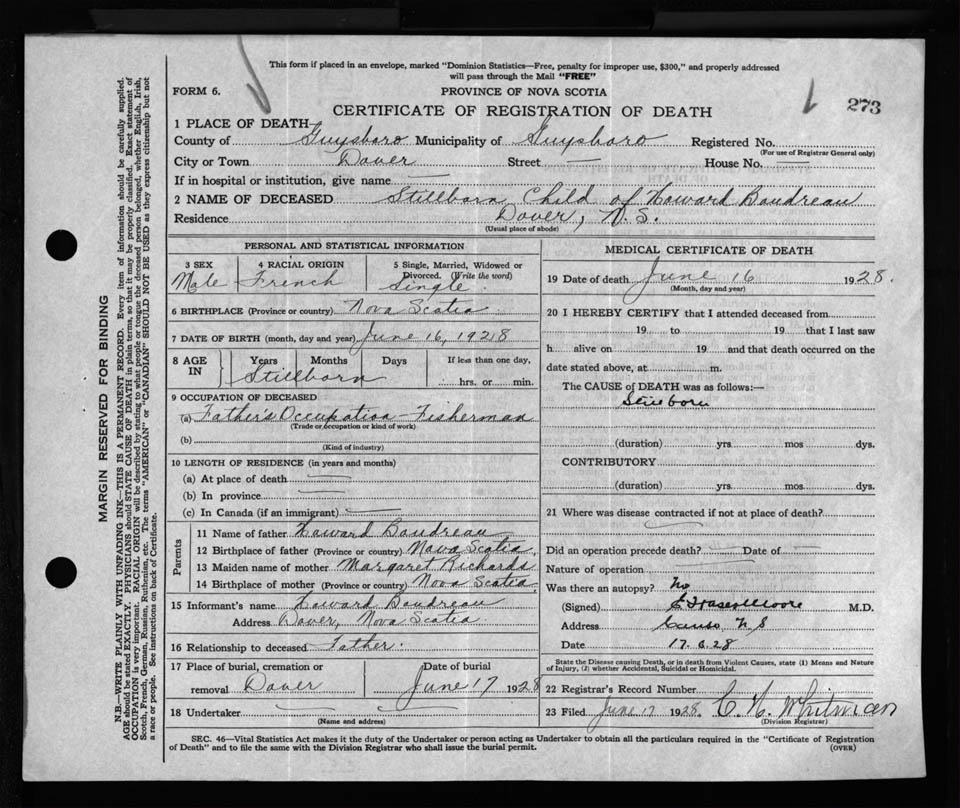 This form if placed in an envelope, marked "Dominion Statistics—Free, penalty for improper use, $300," and properly addressed
will pass through the Mail "FREE"
FORM 6.
PROVINCE OF NOVA SCOTIA
273
CERTIFICATE OF REGISTRATION OF DEATH
1 PLACE OF DEATH
County of Guysboro Municipality of Guysboro Registered No.
(For use of Registrar General only)
City or Town Dover Street — House No. —
If in hospital or institution, give name —
2 NAME OF DECEASED Stillborn Child of Howard Boudreau
Residence Dover, N.S.
(Usual place of abode)
PERSONAL AND STATISTICAL INFORMATION
3 SEX 4 RACIAL ORIGIN 5 Single, Married, Widowed or
Divorced. (Write the word)
Male French Single.
6 BIRTHPLACE (Province or country) Nova Scotia
7 DATE OF BIRTH (month, day and year) June 16, 1928
8 AGE IN Years Months Days If less than one day,
Stillborn hrs. or min.
9 OCCUPATION OF DECEASED
(a) Father's Occupation — Fisherman
(Trade or occupation or kind of work)
(b)
(Kind of industry)
10 LENGTH OF RESIDENCE (in years and months)
(a) At place of death —
(b) In province —
(c) In Canada (if an immigrant) —
Parents
11 Name of father Howard Boudreau
12 Birthplace of father (Province or country) Nova Scotia,
13 Maiden name of mother Margaret Richards
14 Birthplace of mother (Province or country) Nova Scotia
15 Informant's name Howard Boudreau
Address Dover, Nova Scotia
16 Relationship to deceased Father.
17 Place of burial, cremation or Date of burial
removal Dover June 17 1928
18 Undertaker —
(Name and address)
MEDICAL CERTIFICATE OF DEATH
19 Date of death June 16 1928.
(Month, day and year)
20 I HEREBY CERTIFY that I attended deceased from
19 to 19 that I last saw
h alive on 19 and that death occurred on the
date stated above, at m.
The CAUSE of DEATH was as follows:—
Stillborn
(duration) yrs. mos. dys.
CONTRIBUTORY
(duration) yrs. mos. dys.
21 Where was disease contracted if not at place of death?
Did an operation precede death? — Date of —
Nature of operation
Was there an autopsy? No
(Signed) E Fraser Moore M.D.
Address Canso N S
Date 17.6.28
State the Disease causing Death, or in death from Violent Causes, state (1) Means and Nature
of Injury, (2) whether Accidental, Suicidal or Homicidal.
22 Registrar's Record Number
23 Filed June 17 1928. C. H. Whitman
(Division Registrar)
SEC. 46—Vital Statistics Act makes it the duty of the Undertaker or person acting as Undertaker to obtain all the particulars required in the "Certificate of Registration
of Death" and to file the same with the Division Registrar who shall issue the burial permit.
(OVER)
MARGIN RESERVED FOR BINDING
N.B.—WRITE PLAINLY WITH UNFADING INK—THIS IS A PERMANENT RECORD. Every item of information should be carefully supplied.
AGE should be stated EXACTLY. PHYSICIANS should STATE CAUSE OF DEATH in plain terms, so that it may be properly classified. Exact statement of
OCCUPATION is very important. RACIAL ORIGIN will be described by stating to what people or tongue the deceased person belonged, whether English, Irish,
Scotch, French, German, Russian, Ruthenian, etc. The terms "AMERICAN" or "CANADIAN" SHOULD NOT BE USED as they express citizenship but not
a race or people. See instructions on back of Certificate.